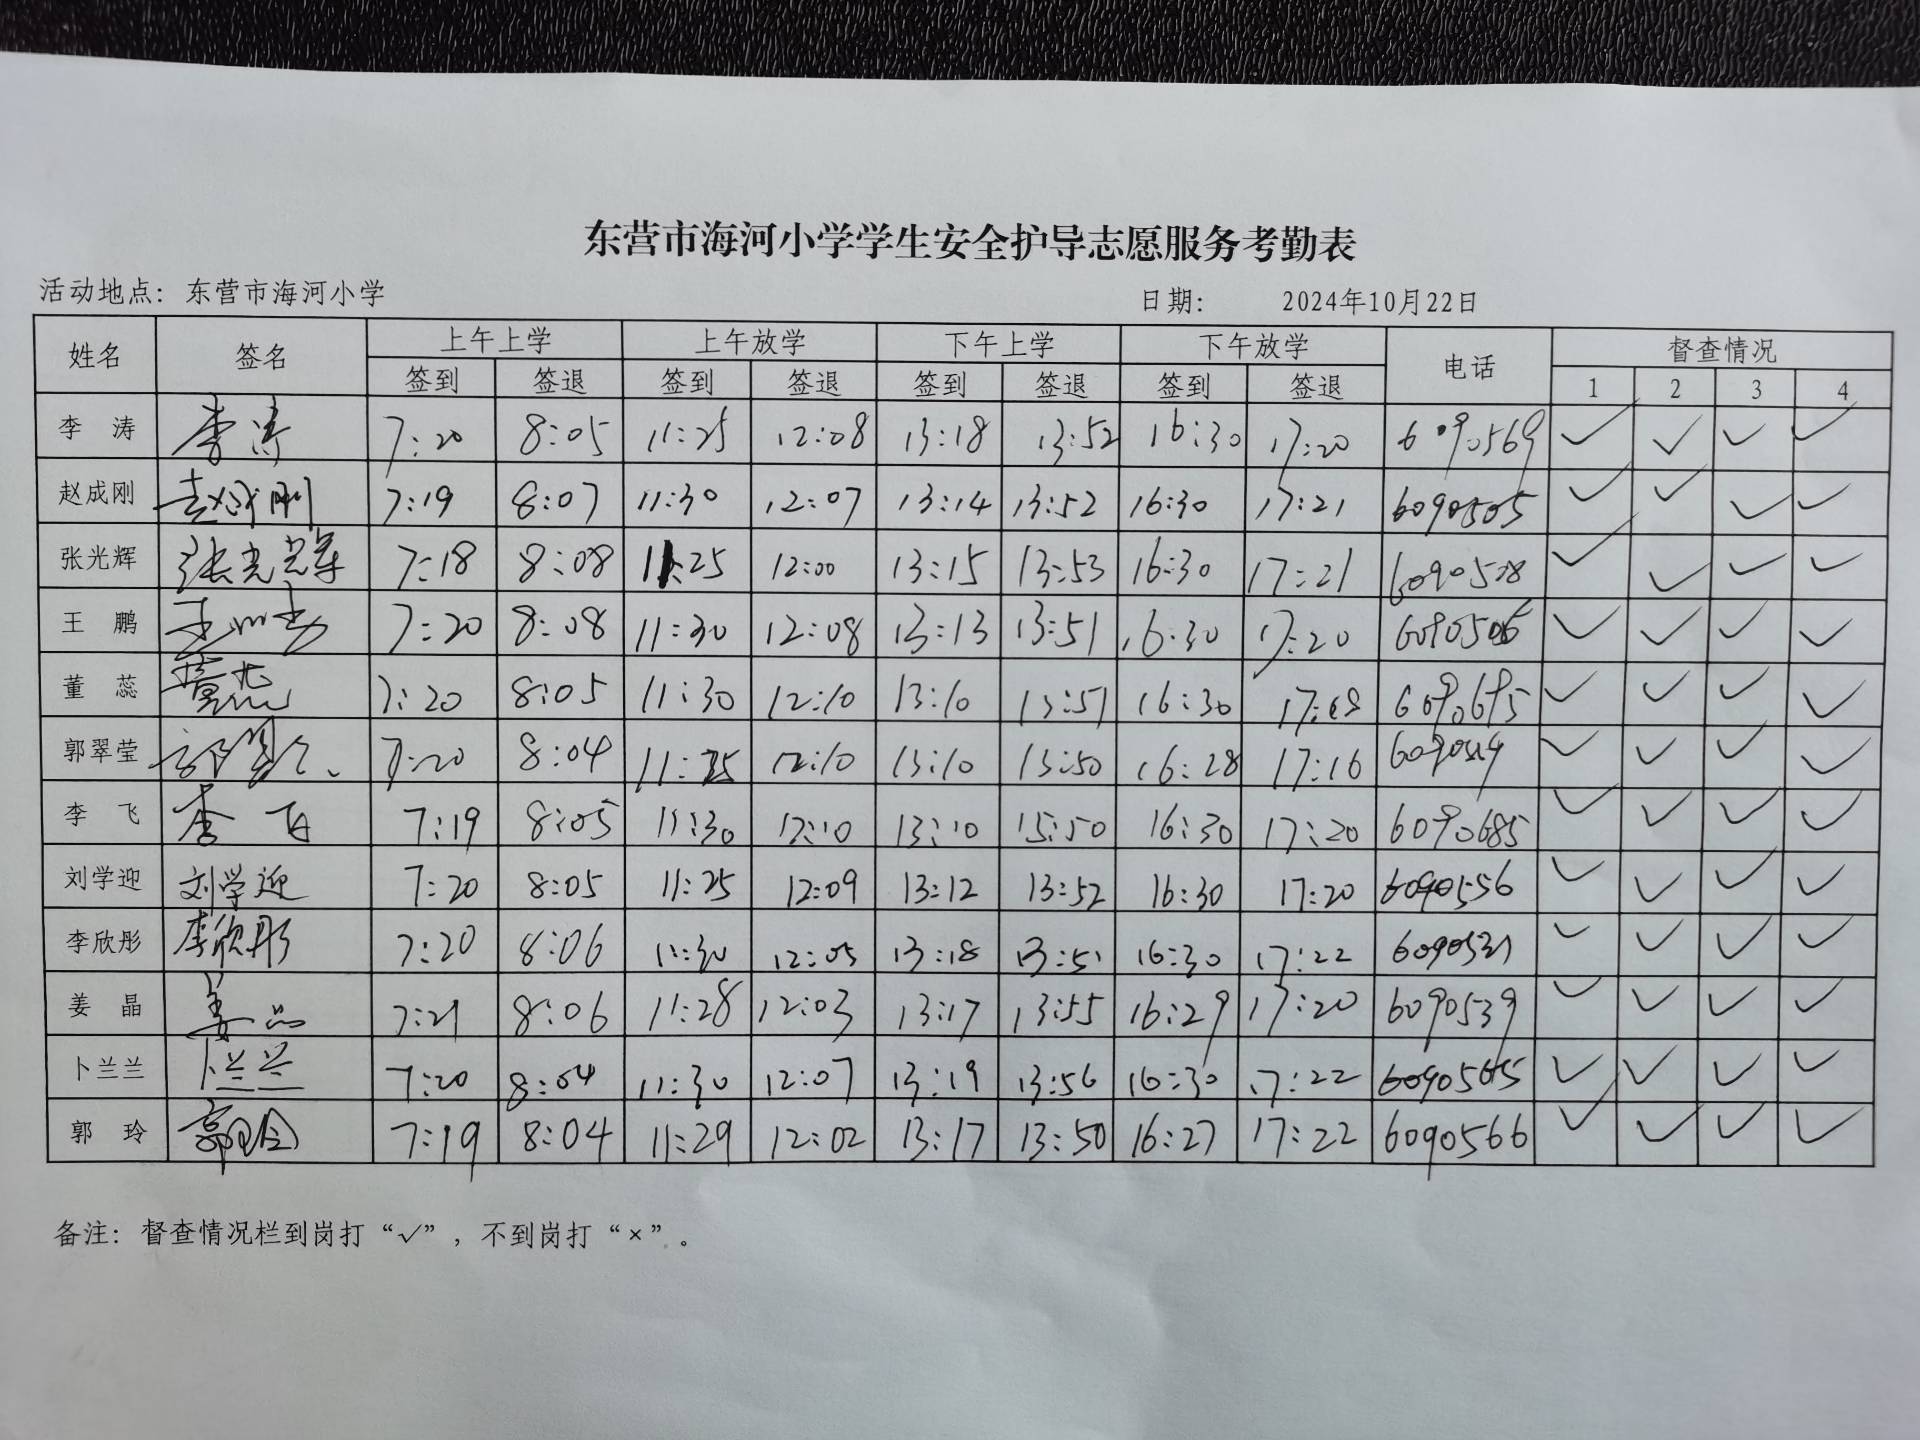 东营市海河小学学生安全护导志愿服务考勤表
活动地点： 东营市海河小学 日期： 2024年10月22日
姓名 签名 上午上学 上午放学 下午上学 下午放学 电话 督查情况
签到 签退 签到 签退 签到 签退 签到 签退 1 2 3 4
李 涛 李涛 7:20 8:05 11:25 12:08 13:18 13:52 16:30 17:20 6090569 ✓ ✓ ✓ ✓
赵成刚 赵成刚 7:19 8:07 11:30 12:07 13:14 13:52 16:30 17:21 6090505 ✓ ✓ ✓ ✓
张光辉 张光辉 7:18 8:08 11:25 12:00 13:15 13:53 16:30 17:21 ✓ ✓ ✓ ✓
王 鹏 7:20 8:08 11:30 12:08 13:13 13:51 16:30 17:20 6090506 ✓ ✓ ✓ ✓
董 蕊 董蕊 7:20 8:05 11:30 12:10 13:10 13:51 16:30 6090695 ✓ ✓ ✓ ✓
郭翠莹 7:20 8:04 11:25 12:10 13:10 13:50 16:28 17:16 ✓ ✓ ✓ ✓
李 飞 李飞 7:19 8:05 11:30 12:10 13:10 15:50 16:30 17:20 6090685 ✓ ✓ ✓ ✓
刘学迎 刘学迎 7:20 8:05 11:25 12:09 13:12 13:52 16:30 17:20 6090556 ✓ ✓ ✓ ✓
李欣彤 李欣彤 7:20 8:06 11:30 12:05 13:18 13:51 16:30 17:22 6090531 ✓ ✓ ✓ ✓
姜 晶 姜晶 7:21 8:06 11:28 12:03 13:17 13:55 16:29 17:20 6090539 ✓ ✓ ✓ ✓
卜兰兰 卜兰兰 7:20 8:04 11:30 12:07 13:19 13:56 16:30 17:22 ✓ ✓ ✓ ✓
郭 玲 郭玲 7:19 8:04 11:29 12:02 13:17 13:50 16:27 17:22 6090566 ✓ ✓ ✓ ✓
备注：督查情况栏到岗打“√”，不到岗打“×”。